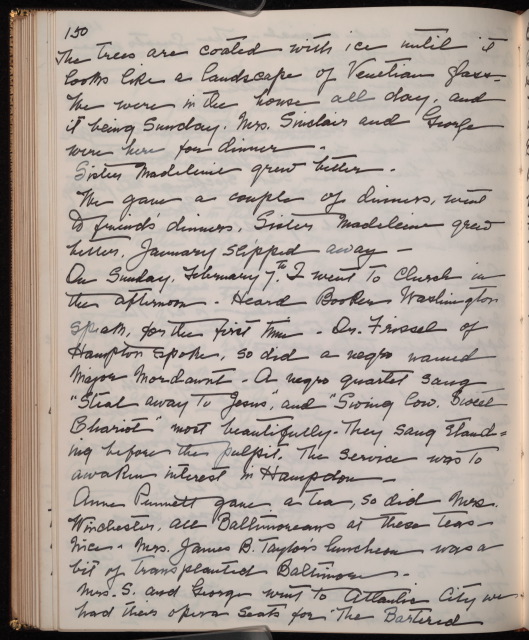 150
The trees are coated with ice until it
looks like a landscape of Venetian glass-
We were in the house all day, and
it being Sunday. Mrs. Sinclair and George
were here for dinner -
Sister Madeleine grew better -
We gave a couple of dinners, went
to friends' dinners, Sister Madeleine grew
better. January slipped away -
On Sunday, February 7th. I went to Church in
the afternoon - Heard Booker Washington
speak, for the first time - Dr. Frissel of
Hampton spoke, so did a negro named
Major Mordaunt - A negro quartet sang
"Steal away to Jesus", and "Swing low, Sweet
Chariot" most beautifully - They sang stand=
ing before the pulpit. The service was to
awaken interest in Hampdon -
Anne Pennett gave a tea, so did Mrs.
Winchester, all Baltimoreans at these teas -
Nice - Mrs. James B. Taylor's luncheon was a
bit of transplanted Baltimore -
Mrs. S. and George went to Atlantic City we
had their opera seats for "The Bartered